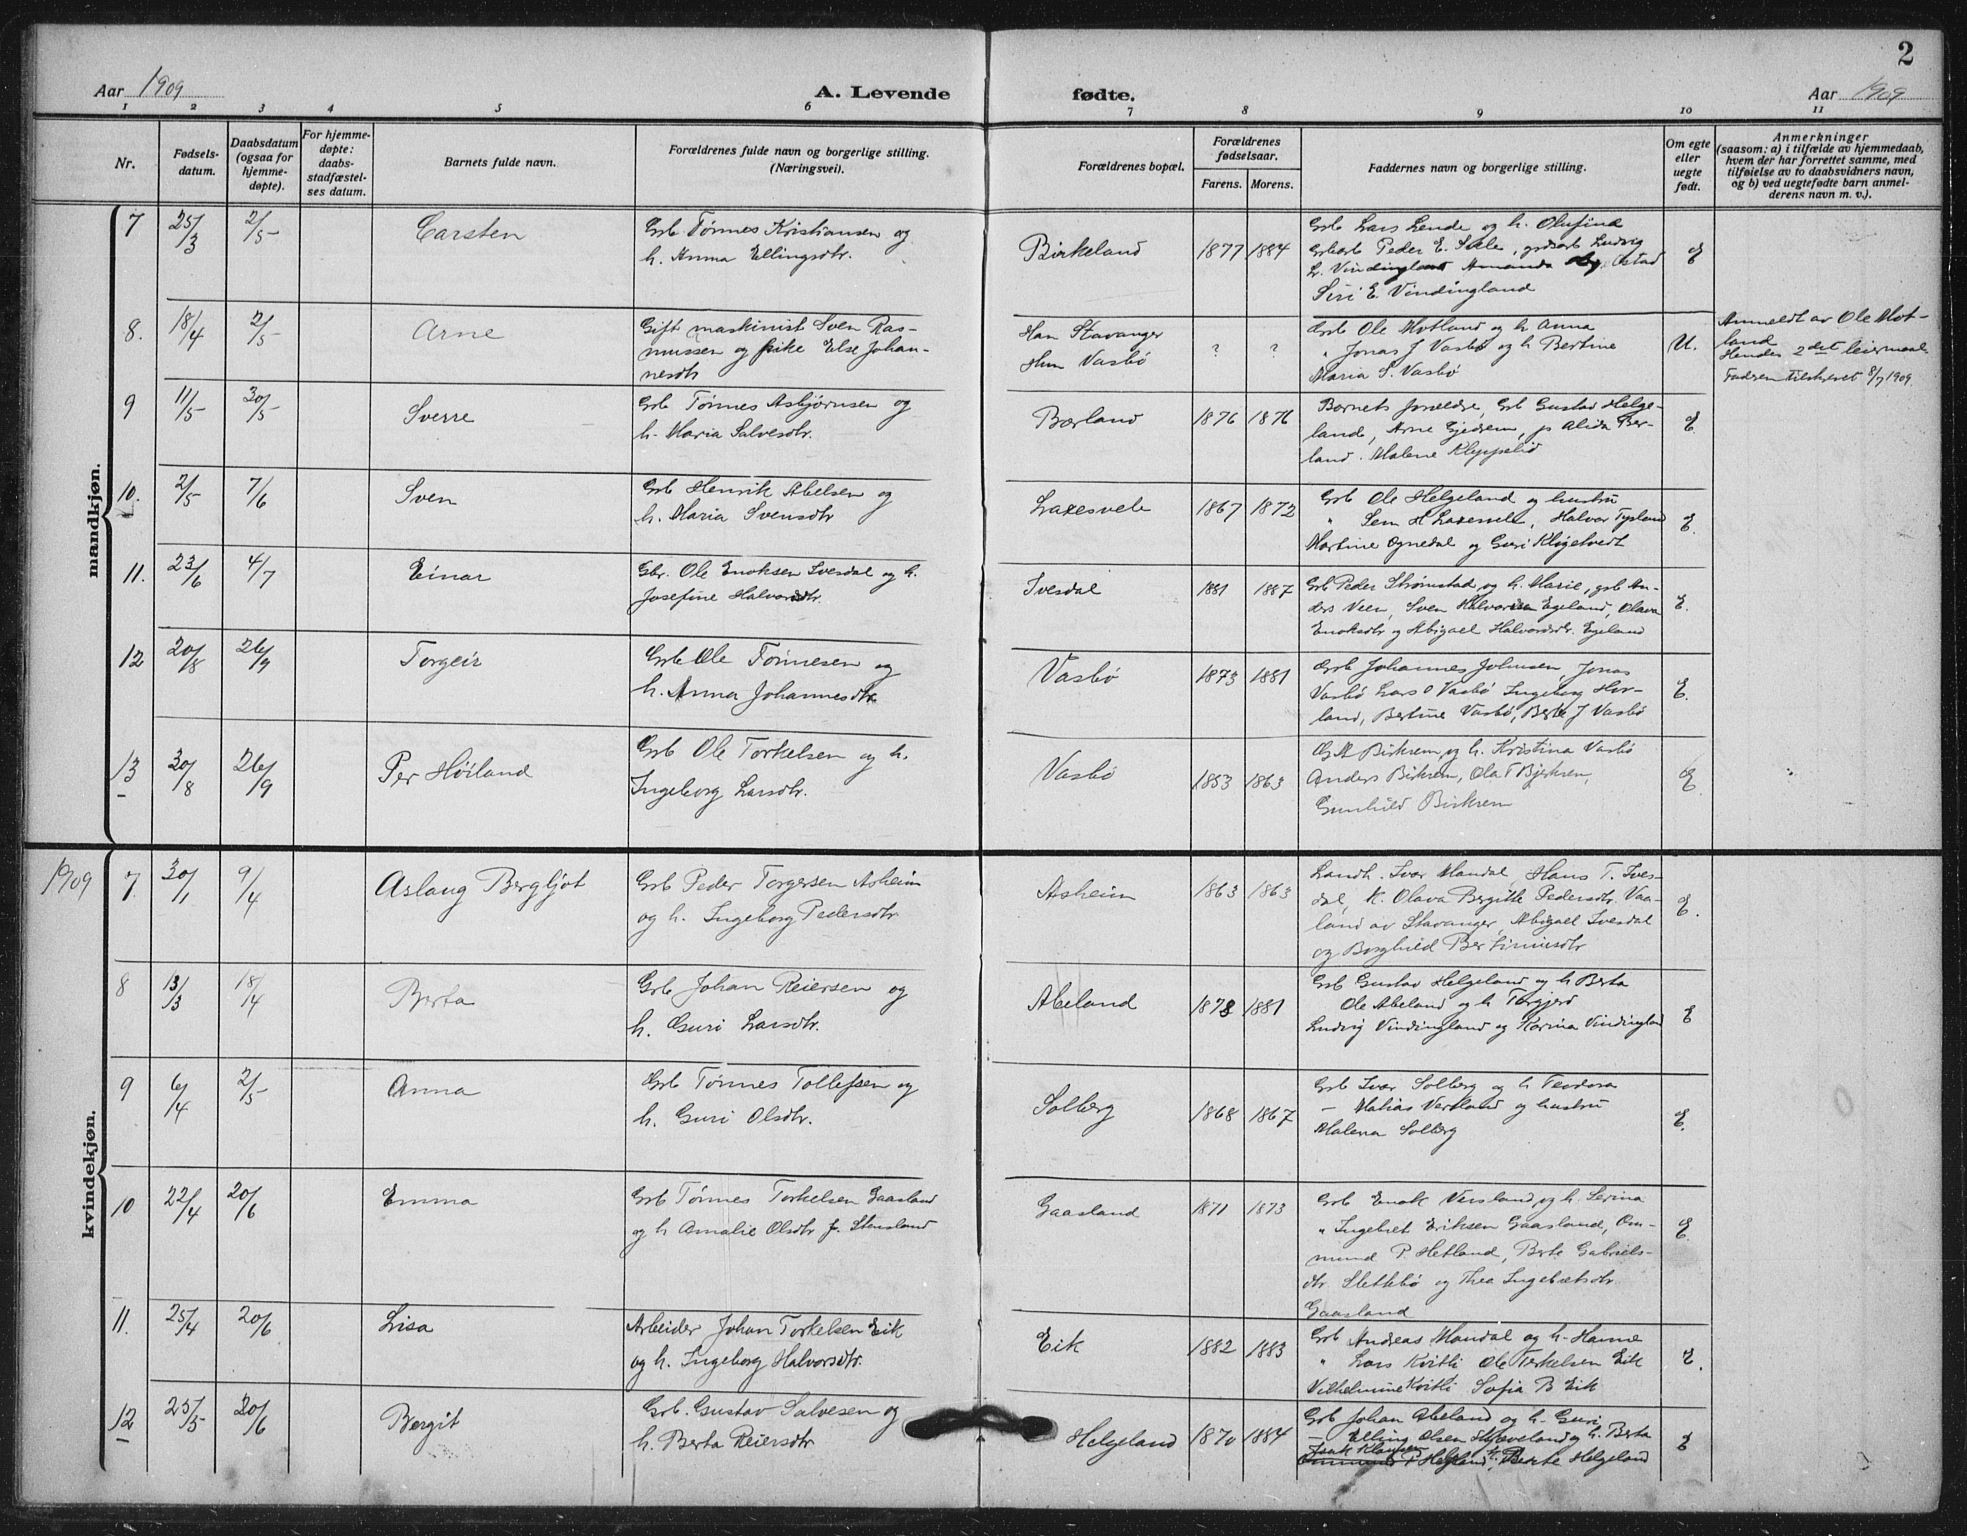 2
Aar 1909
A. Levende fødte.
Aar 1909
1 2 3 4 5 6 7 8 9 10 11
Nr.
Fødsels-
datum.
Daabsdatum
(ogsaa for
hjemme-
døpte).
For hjemme-
døpte:
daabs-
stadfæstel-
ses datum.
Barnets fulde navn.
Forældrenes fulde navn og borgerlige stilling.
(Næringsvei).
Forældrenes bopæl.
Forældrenes
fødselsaar.
Farens. Morens.
Faddernes navn og borgerlige stilling.
Om egte
eller
uegte
født.
Anmerkninger
(saasom: a) i tilfælde av hjemmedaab,
hvem der har forrettet samme, med
tilføielse av to daabsvidners navn,
og b) ved uegtefødte barn anmel-
derens navn m. v.).
mandkjøn.
7 25/3 2/5 Carsten
Grb Tønnes Kristiansen og
h. Anna Ellingsdtr.
Birkeland 1877 1884
Grb Lars Lende og h. Olufine
Peder E. Sæle, Ludvig
L. Vindingland Amanda
Siri E. Vindingland
E
8. 18/4 2/5 Arne
Gift maskinist Sven Ras-
mussen og pike Else Johan-
nesdtr
Han Stavanger
Hun Vasbø
? ?
Grb Ole Motland og h Anna
" Jonas J Vasbø og h Bertine
Maria S. Vasbø
U.
Anmeldt av Ole Mot-
land
Hendes 2det leiermaal
Fadren tilskrevet 8/7 1909.
9 11/5 30/5 Sverre
Grb Tønnes Asbjørnsen og
h. Maria Salvesdtr.
Bærland 1876 1876
Barnets forældre, Grb Gustav Helge-
land, Arne Gjedrem, p. Alida Bær-
land. Malene Kleppelid
E.
10. 2/5 7/6 Sven
Grb Henrik Abelsen og
h. Maria Svensdtr
Laxesvele 1867 1872
Grb Ole Helgeland og hustru
" Sem H Laxesvele, Halvor Tysland
Martine Ognedal og Guri Kløgetvedt
E.
11. 23/6 4/7 Einar
Gbr. Ole Enoksen Ivesdal og h.
Josefine Halvorsdtr.
Ivesdal 1881 1887
Grb Peder Strømstad og h. Marie, grb An-
ders Veen, Sven Halvorsen Egeland, Olava
Enoksdtr og Abigael Halvordsdtr. Egeland
E.
12 20/8 26/9 Torgeir
Grb Ole Tønnesen og
h. Anna Johannesdtr
Vasbø 1873 1881
Grb Johannes Johnsen, Jonas
Vasbø Lars O Vasbø Ingeborg Hov-
land, Bertine Vasbø, Berte J Vasbø
E.
13 30/8 26/9 Per Høiland
Grb Ole Torkelsen og h.
Ingeborg Larsdtr.
Vasbø 1853 1863
G M Birkrem, og h. Kristina Vasbø
Anders Birkrem, Ola T Bjerkrem,
Gunhild Birkrem
E
1909
kvindekjøn.
7. 30/1 9/4 Aslaug Bergljot
Grb Peder Torgersen Asheim
og h. Ingeborg Pedersdtr
Asheim 1863 1863
Landh. Ivar Mandal, Hans T. Ives-
dal, K. Olava Bergitte Pedersdtr. Vaa-
land av Stavanger, Abigael Ivesdal
og Borghild Bertinusdtr
E.
8 13/3 18/4 Berta
Grb Johan Reiersen og
h. Guri Larsdtr.
Abeland 1878 1881
Grb Gustav Helgeland og h Berta
Ole Abeland og h Torgjerd
Ludvig Vindingland og Karina Vindingland
E
9 6/4 2/5 Anna
Grb Tønnes Tollefsen og
h. Guri Olsdtr.
Solberg 1868 1867
Grb Ivar Solberg og h Teodora
— Matias Versland og hustru
Malena Solberg
E.
10 22/4 20/6 Emma
Grb Tønnes Torkelsen Gaasland
og h Amalie Olsdtr f. Stensland
Gaasland 1871 1873
Grb Enok Versland og h. Serina
" Ingebret Eriksen Gaasland, Om-
mund P. Hetland, Berte Gabriels-
dtr. Slettebø og Thea Ingebretsdtr.
Gaasland
E.
11. 25/4 20/6 Lisa
Arbeider Johan Torkelsen Eik
og h. Ingeborg Halvorsdtr.
Eik 1882 1883
Grb Andreas Mandal og h. Hanne
" Lars Kvitli Ole Terkelsen Eik
Vilhelmine Kvitli Sofia B Eik
E.
12 25/5 20/6 Bergit
Grb. Gustav Salvesen og
h. Berta Reiersdtr
Helgeland 1870 1884
Grb Johan Abeland og h. Guri
— Elling Olsen Skjæveland og h. Berta
Isak Klausen
Ommund P Helgeland, Berte Helgeland
E